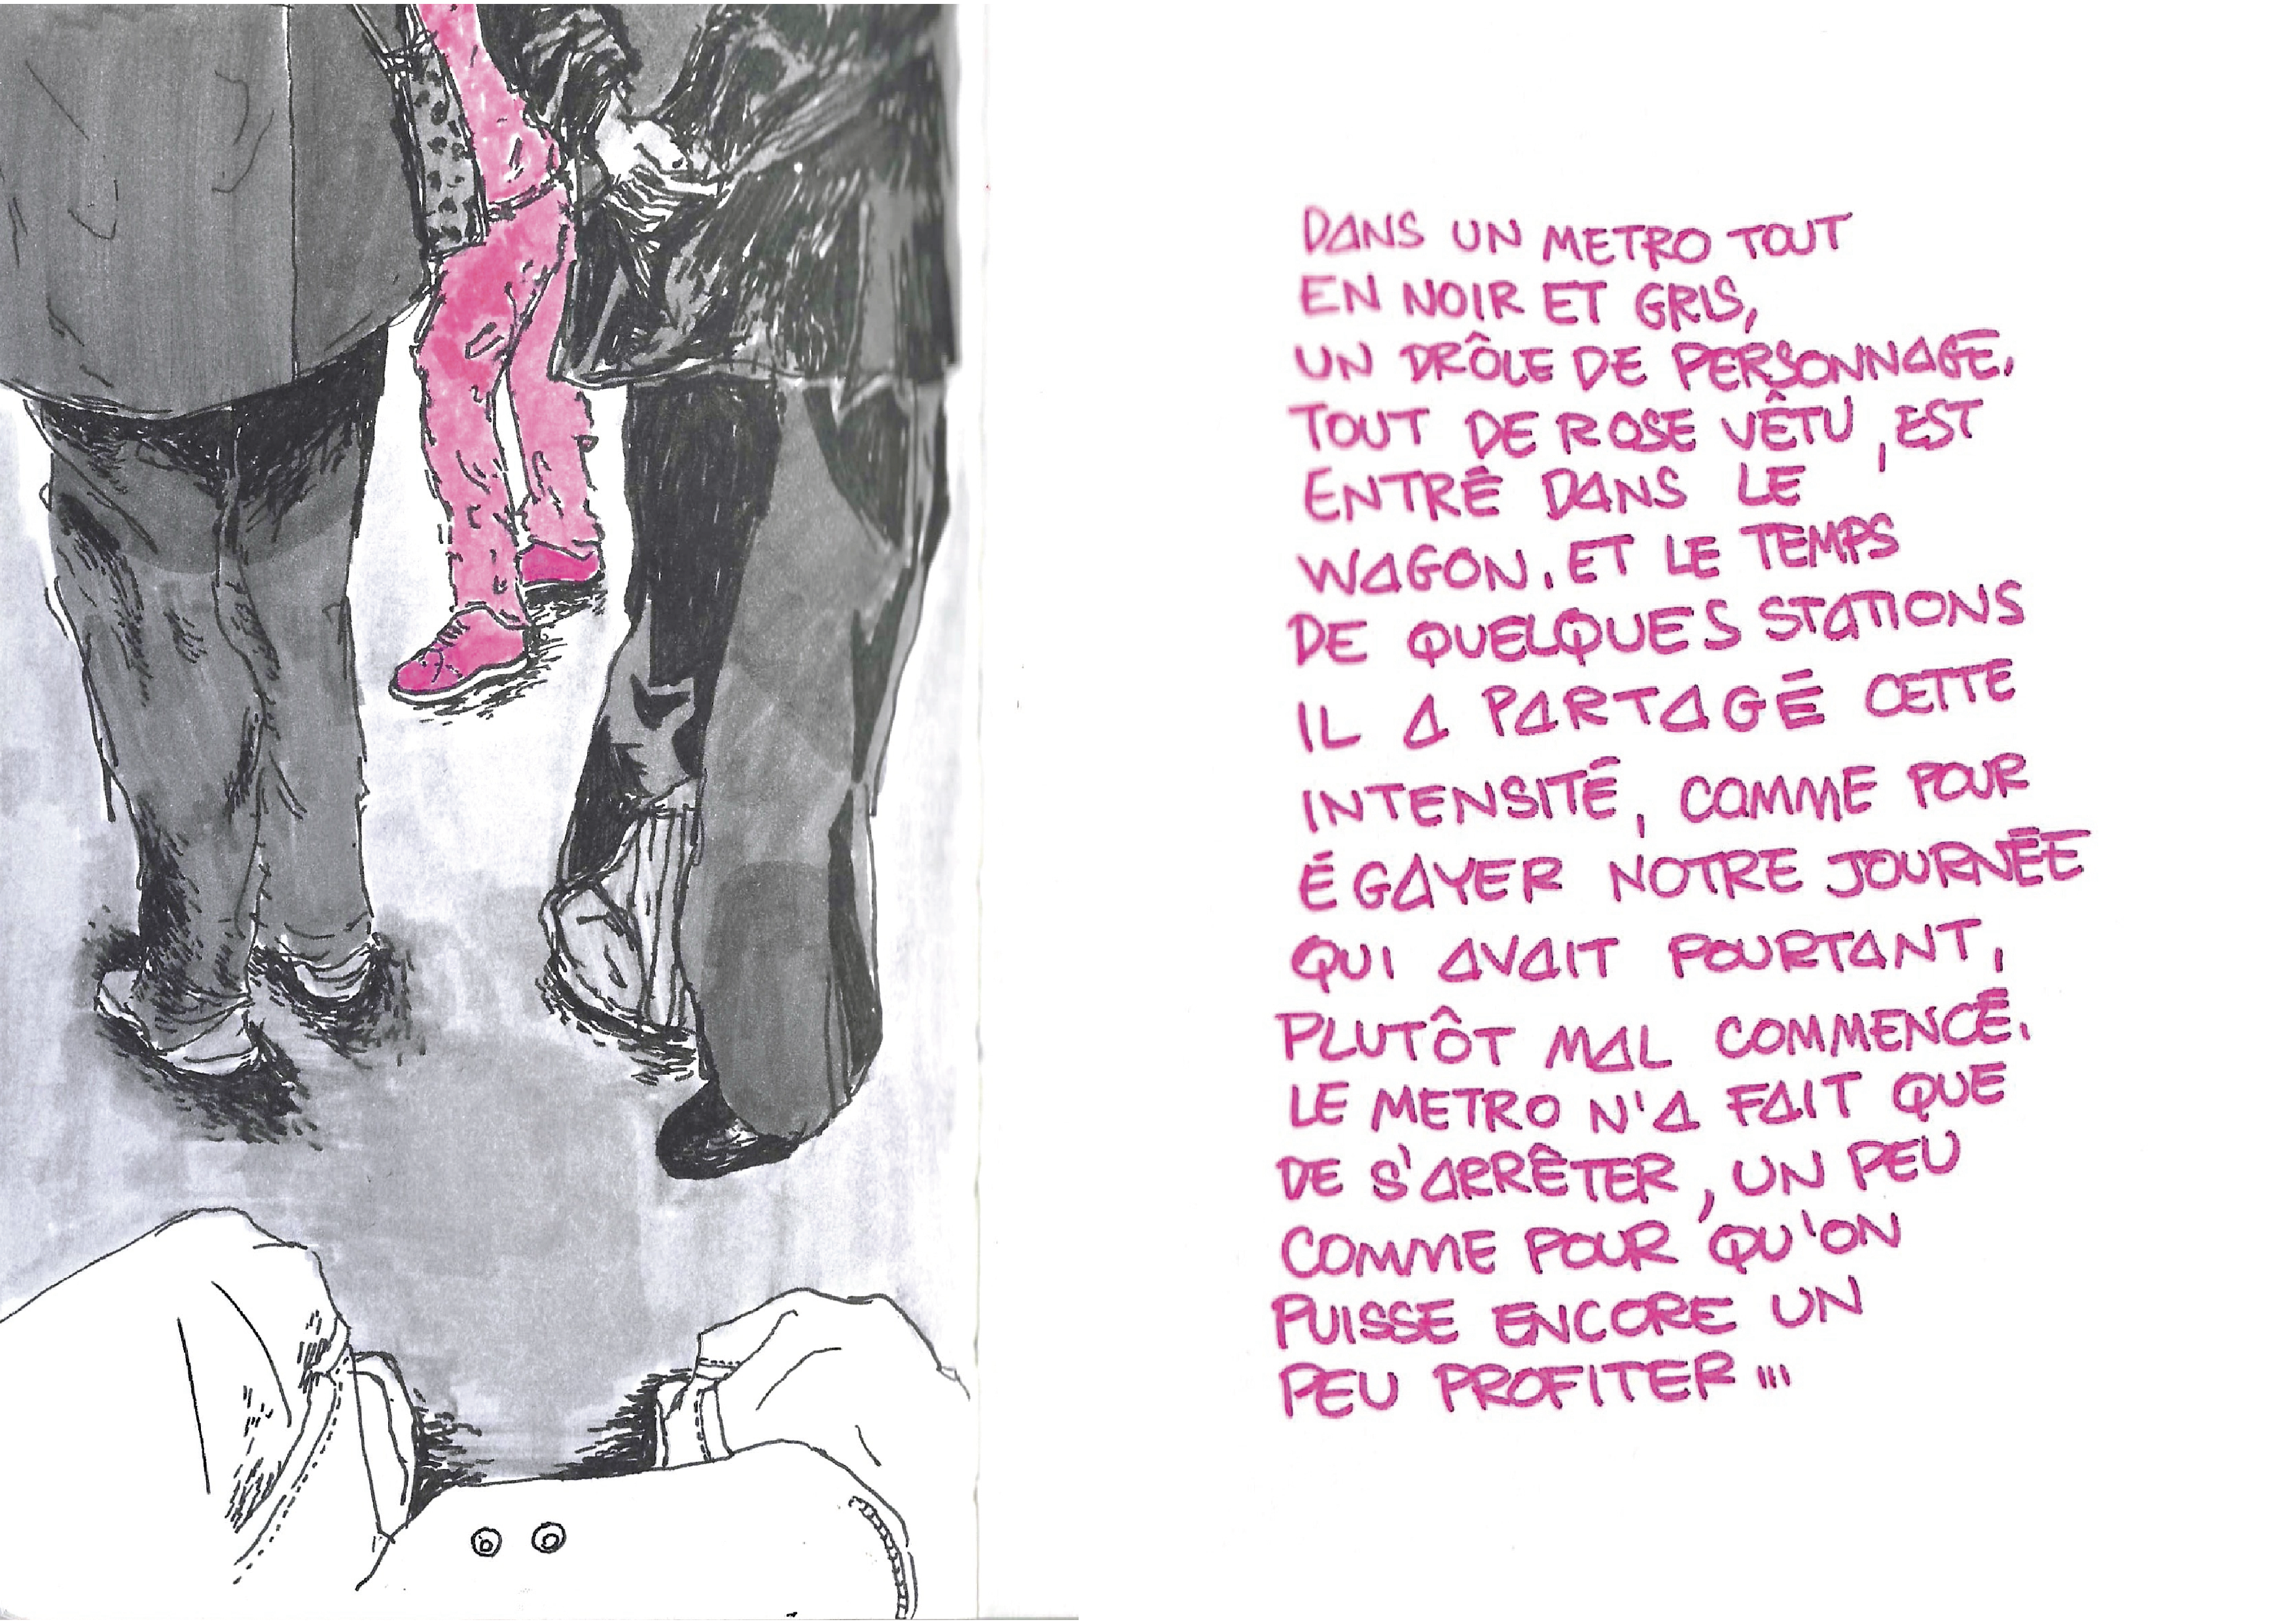 DANS UN METRO TOUT
EN NOIR ET GRIS,
UN DRÔLE DE PERSONNAGE,
TOUT DE ROSE VÊTU, EST
ENTRÉ DANS LE
WAGON. ET LE TEMPS
DE QUELQUES STATIONS
IL A PARTAGÉ CETTE
INTENSITÉ, COMME POUR
ÉGAYER NOTRE JOURNÉE
QUI AVAIT POURTANT,
PLUTÔT MAL COMMENCÉ.
LE METRO N'A FAIT QUE
DE S'ARRÊTER, UN PEU
COMME POUR QU'ON
PUISSE ENCORE UN
PEU PROFITER...